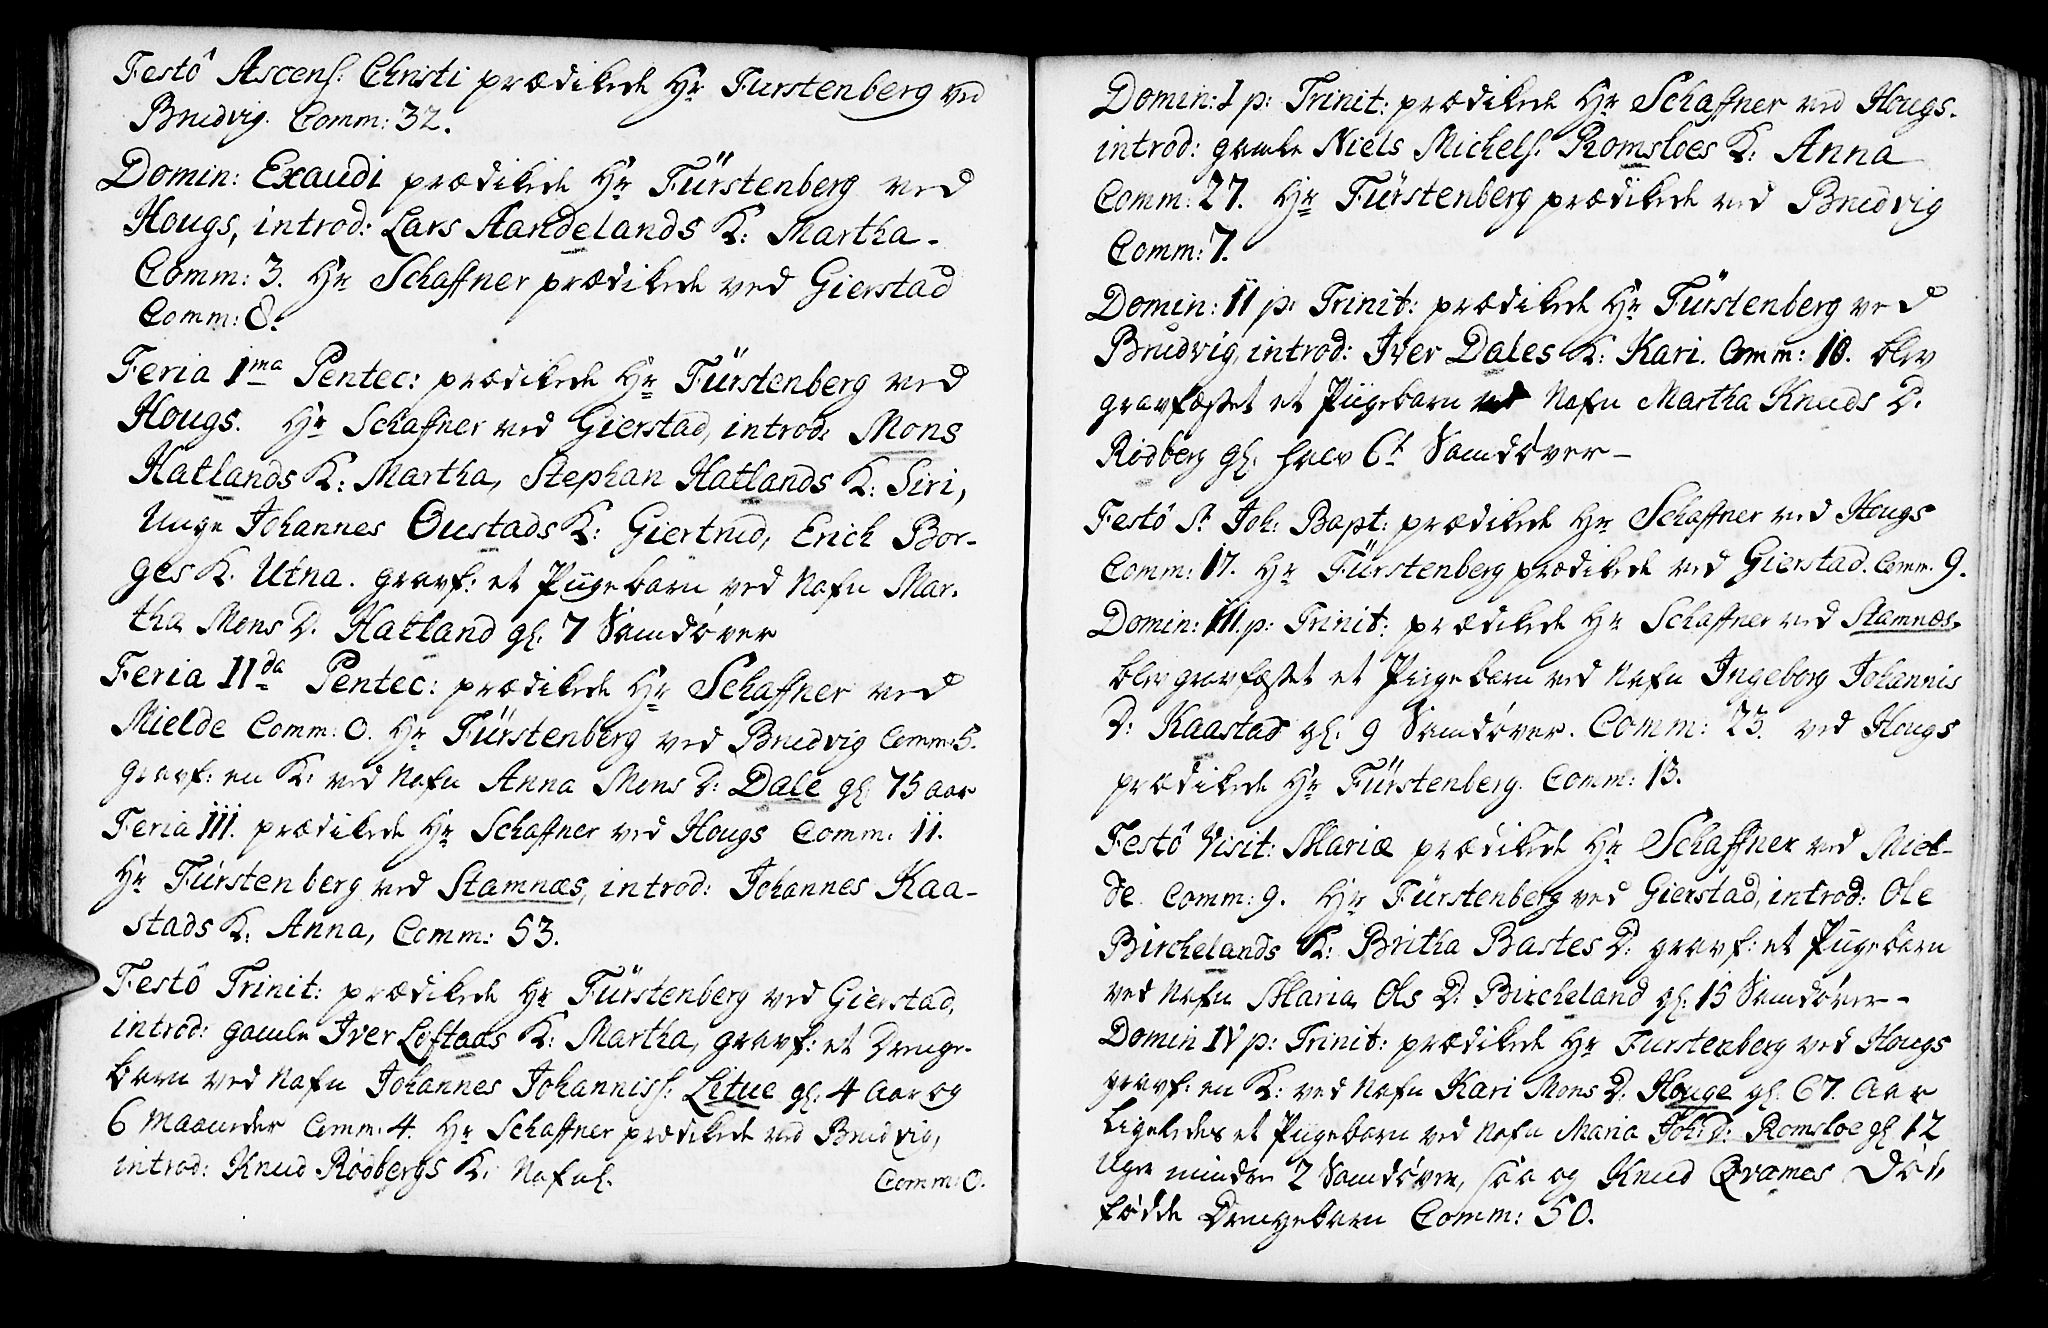 Festô Ascens: Christi prædikede Hr Fürstenberg ved
Brudvig. Comm: 32.
Domin: Exaudi prædikede Hr Fürstenberg ved
Hougs, introd: Lars Aandelands K: Martha.
Comm: 3. Hr Schaffner prædikede ved Gierstad
Comm: 8.
Feria 1ma Pentec: prædikede Hr Fürstenberg ved
Hougs. Hr Schaffner ved Gierstad, introd: Mons
Hatlands K: Martha, Stephan Hatlands K: Siri,
Unge Johannes Oustads K: Giertrud, Erich Bor-
ges K. Utna. gravf: et Pügebarn ved Nafn Mar-
tha Mons D. Hatland gl. 7 Samdøver
Feria IIda Pentec: prædikede Hr Schaffner ved
Mielde Comm: 0. Hr Fürstenberg ved Brudvig Comm: 5.
gravf: en K: ved Nafn Anna Mons D: Dale gl. 75 aar
Feria III. prædikede Hr Schaffner ved Hougs Comm: 11.
Hr Fürstenberg ved Stamnæs, introd: Johannes Kaa-
stads K. Anna, Comm: 53.
Festô Trinit: prædikede Hr Fürstenberg ved Gierstad,
introd: gamle Iver Loftaas K: Martha, gravf: et Drenge-
barn ved Nafn Johannes Johanniss: Litue gl: 4 Aar og
6 Maaneder Comm: 4. Hr Schaffner prædikede ved Brudvig,
introd: Knud Rødbergs K: Nafnl. Comm: 0.
Domin: I p: Trinit: prædikede Hr Schaffner ved Hougs.
introd: gamle Niels Michels: Romsloes K: Anna
Comm: 27. Hr Fürstenberg prædikede ved Brudvig
Comm: 7.
Domin: II p: Trinit: prædikede Hr Fürstenberg ved
Brudvig, introd: Iver Dales K: Kari. Comm: 10. blev
gravfæstet et Pügebarn ved Nafn Martha Knuds D.
Rødberg gl. halv 6t Samdøver-
Festô St. Joh: Bapt: prædikede Hr Schaffner ved Hougs
Comm: 17. Hr Fürstenberg prædikede ved Gierstad. Comm. 9.
Domin: III. p: Trinit: prædikede Hr Schaffner ved Stamnæs.
blev gravfæstet et Pigebarn ved Nafn Ingeborg Johannis
D: Kaastad gl. 9 Samdøver. Comm: 23. ved Hougs
prædikede Hr Fürstenberg. Comm: 13.
Festô Visit: Mariæ prædikede Hr Schaffner ved Miel-
de. Comm: 9. Hr Fürstenberg ved Gierstad, introd: Ole
Birchelands K: Britha Bastes D: gravf: et Pügebarn
ved Nafn Maria Ols D. Bircheland gl: 15 Samdøver-
Domin IV p: Trinit: prædikede Hr Furstenberg ved Hougs
gravf: en K: ved Nafn Kari Mons D. Houge gl. 67. Aar
Ligeledes et Pügebarn ved Nafn Maria Joh: D: Romsloe gl 12
Uger mindre 2 Samdøvre, saa og Knud Qvames Død,
fødde Drengebarn Comm: 50.